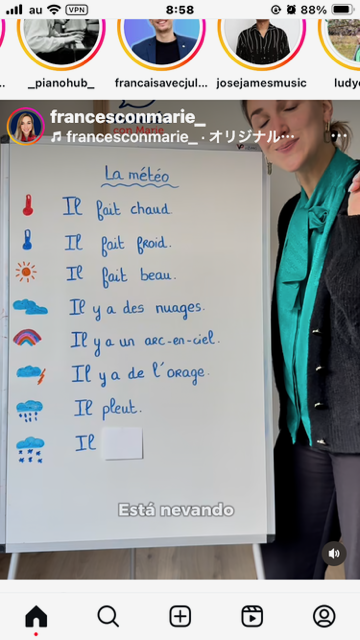 au
8:58
VPN
88%
_pianohub_
francaisavecjul...
josejamesmusic
francesconmarie_
francesconmarie_ · オリジナル…
con Marie
La météo
Il fait chaud
Il fait froid.
Il fait beau.
Il y a des nuages.
Il y a un arc-en-ciel.
Il y a de l'orage.
Il pleut.
Il
Está nevando